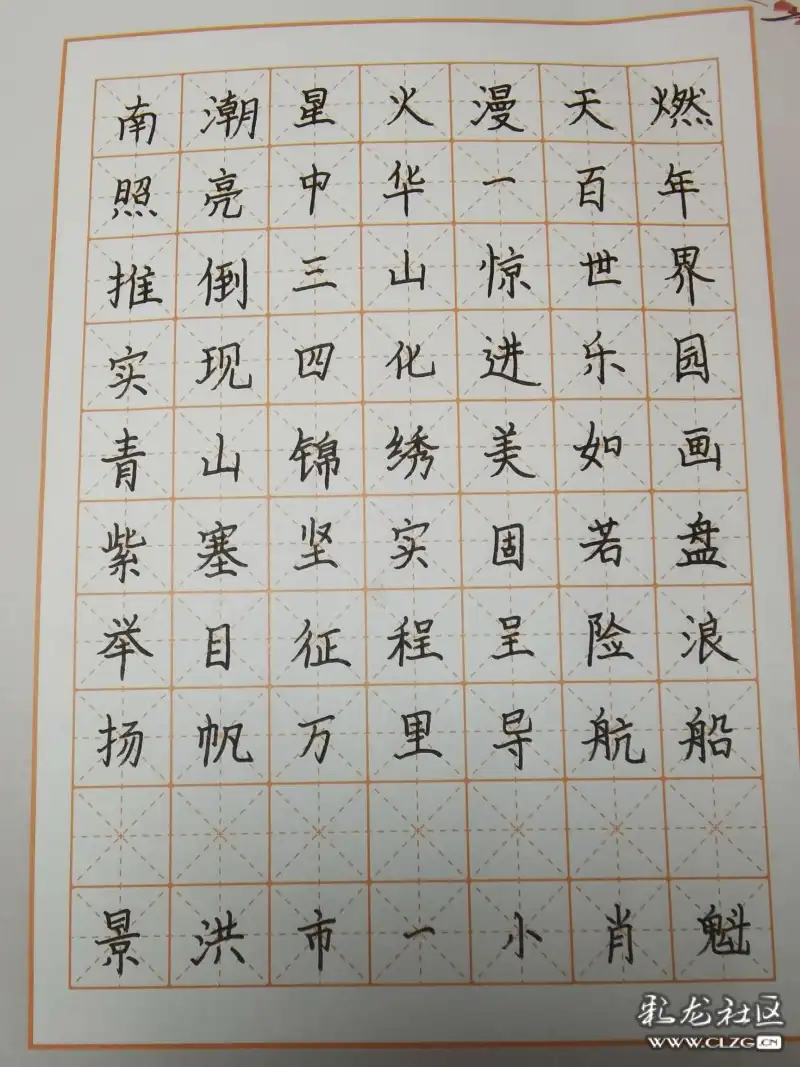 南潮星火漫天燃
照亮中华一百年
推倒三山惊世界
实现四化进乐园
青山锦绣美如画
紫塞坚实固若盘
举目征程呈险浪
扬帆万里导航船
景洪市一小肖魁
彩龙社区
WWW.CLZG.CN